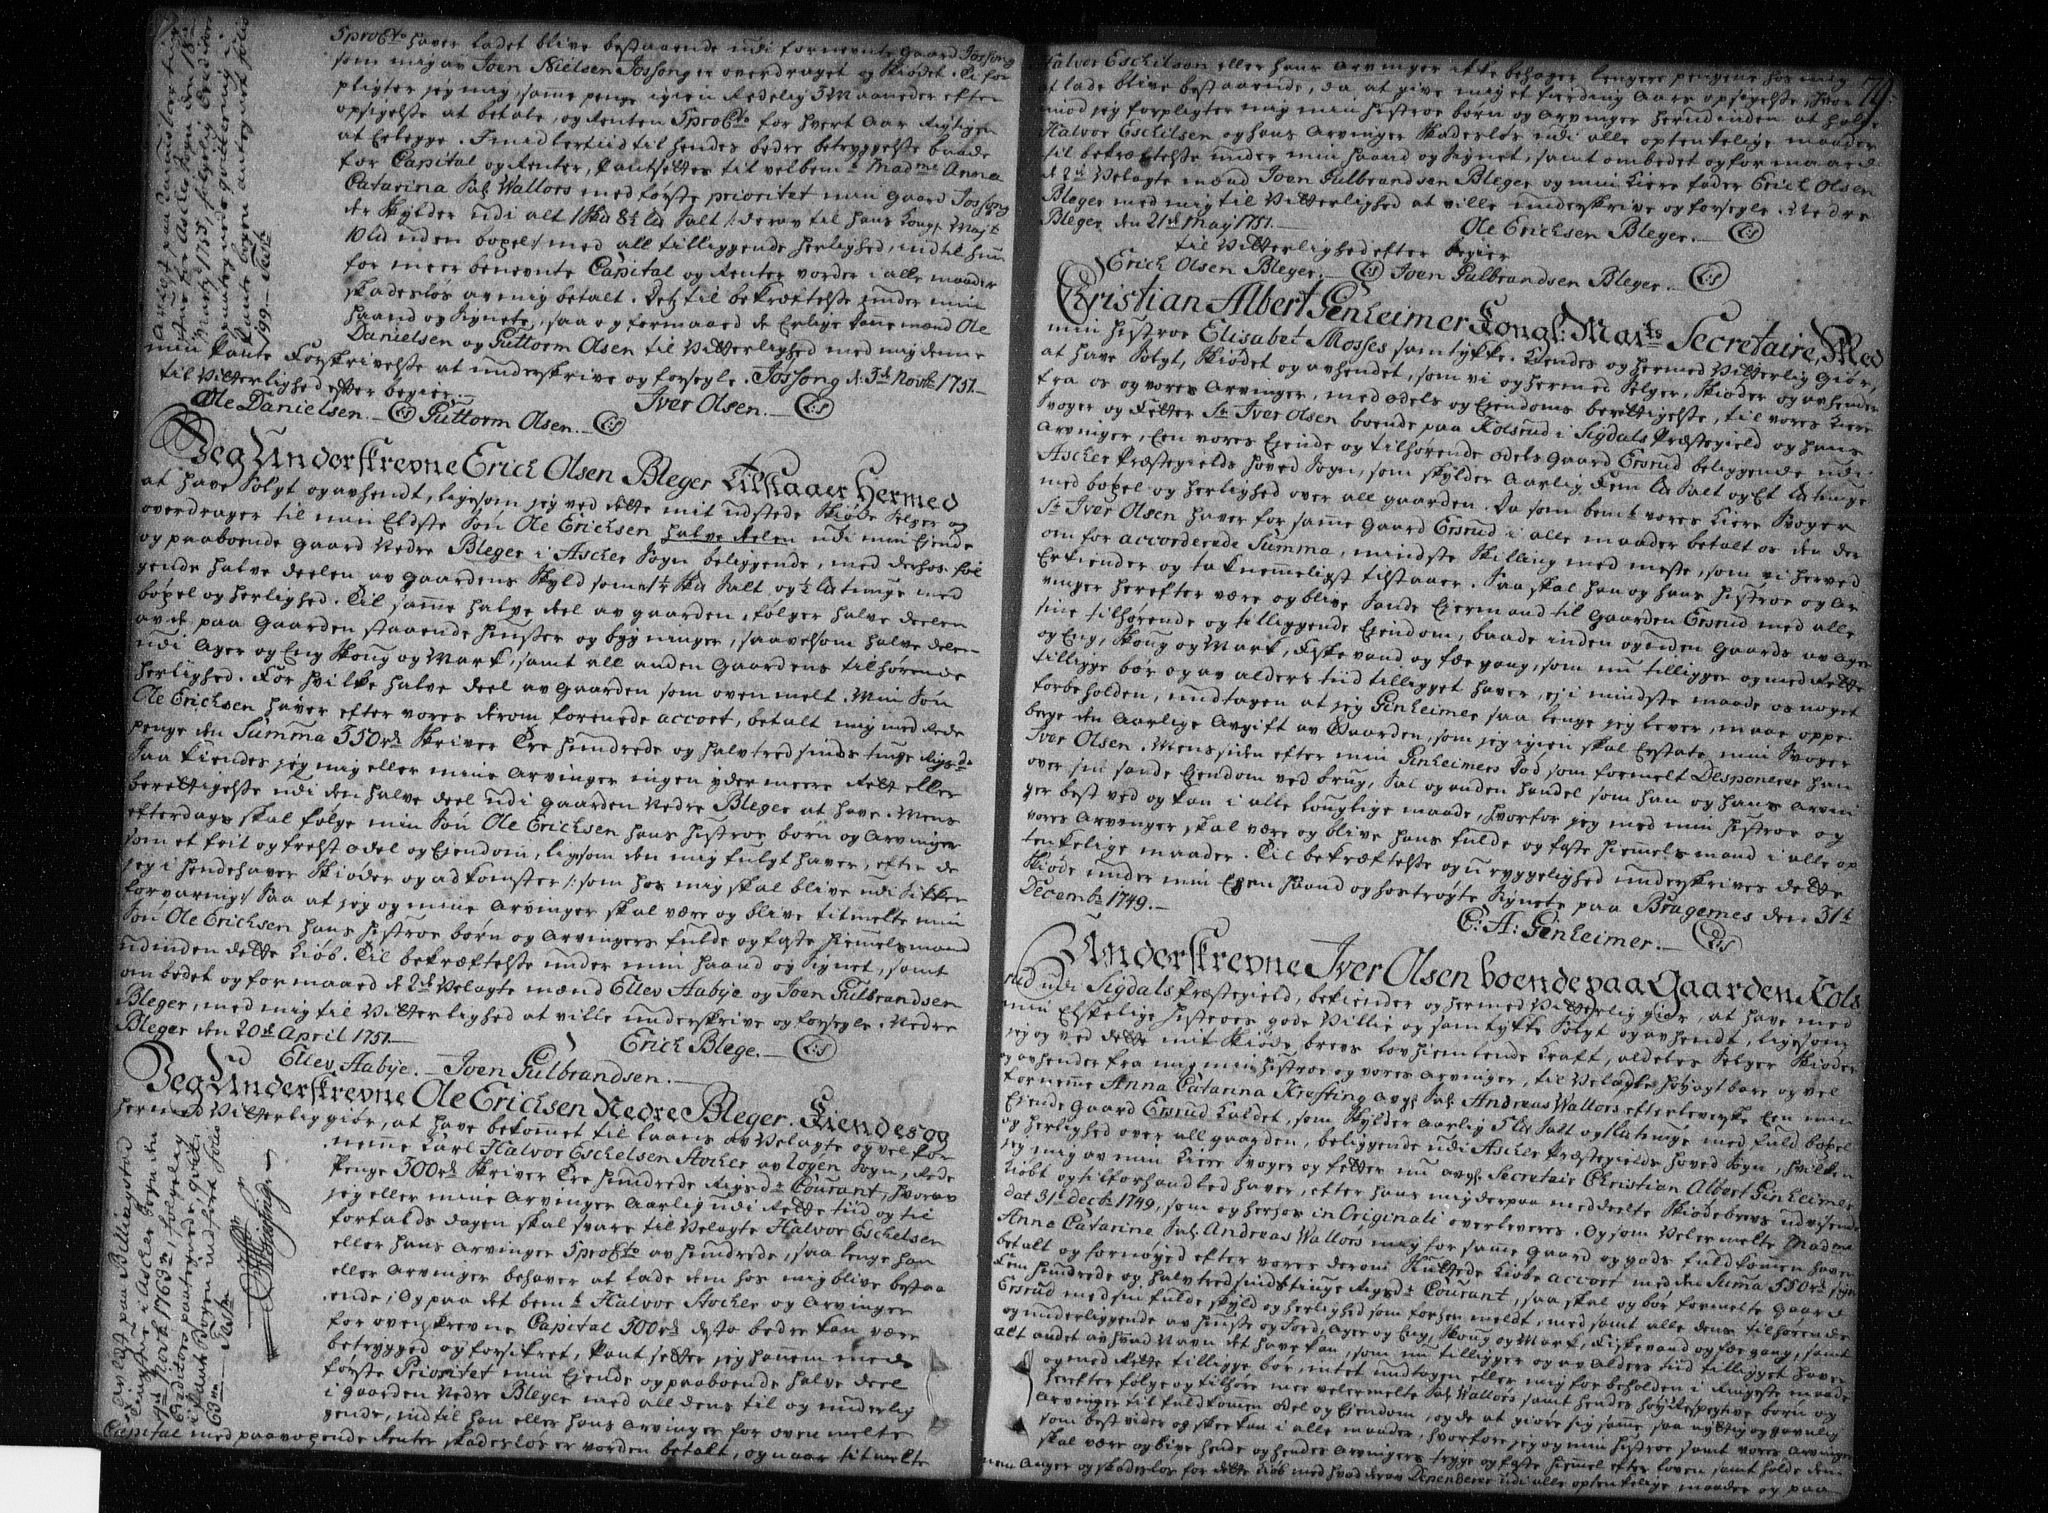 5 proCto haver ladet blive bestaaende udi fornevnte gaard Jossong
som mig av Joen Nielsen Jossong er overdraget og Skiødet. Ti for
pligter jeg mig, samme penge igien Redelig 3 Maaneder efter
opsigelse at betale, og Renten 5 proCto for hvert Aar Rigtigen
at Erlegge. Imidlertiid til hendes bedre betryggelse baade
for Capital og Renter, Pantsettes til velbemte Madme Anna
Catarina Sal: Wallors med første prioritet min gaard Jossong
der Skylder udi alt 1 Skd 8½ Ld Salt /: derav til hans Kongl: Majt
10 Ld uden bøxel :/ med all tilliggende herlighed, indtil hun
for meer benevnte Capital og Renter vorder i alle maader
skadesløs av mig betalt. Det til bekræftelse under min
haand og Signete, saa og formaaed de Erlige Danne mænd Ole
Danielsen og Guttorm Olsen til Vitterlighed med mig denne
min Pante Forskrivelse at underskrive og forsegle. Jossong d: 5te Novbr 1751.
til Vitterlighed efter begier
Iver Olsen. (LS)
Ole Danielsen. (LS) Guttorm Olsen. (LS)
Jeg Underskrevne Erich Olsen Bleger Tilstaaer Hermed
at have Solgt og avhendt, ligesom jeg ved dette mit udstede Skiøde Selger og
overdrager til min Eldste Søn Ole Erichsen halve delen udi min Eyende
og paaboende gaard Nedre Bleger i Ascher Sogn beliggende, med derhos føl
gende halve deelen av gaardens Skyld som er ½ Skd Salt og ½ Ls tunge med
bøxel og herlighed. Til samme halve deel av gaarden, følger halve deelen
av de paa gaarden staaende huusser og bygninger, saavelsom halve delen
udi Ager og Eng Skoug og Mark, samt all anden Gaardens tilhørende
herlighed. For hvilke halve deel av gaarden som oven melt. Min Søn
Ole Erichsen haver efter vores derom forenede accort, betalt mig med Rede
penge den Summa 350rd Skriver Tre hundrede og halvtredsinds tiuge Rigsdr
Saa kiendes jeg mig eller mine Arvinger ingen ydermeere Rett eller
berettigelse udi den halve deel udi gaarden Nedre Bleger at have. Mens
efterdags skal følge min Søn Ole Erichsen hans hustroe børn og Arvinger
som et frit og frelst odel og Eyendom, ligesom den mig fulgt haver, efter de
jeg i hendehaver Skiøder og adkomster /: som hos mig skal blive udi Sikker
forvaring :/ Saa at jeg og mine Arvinger skal være og blive titmelte min
Søn Ole Erichsen hans hustroe børn og Arvingers fulde og faste hiemmelsmand
udinden dette Kiøb. Til bekræftelse under min haand og Signet, samt
ombedet og formaaed de 2de Velagte mænd Ellev Aabye og Joen Gulbrandsen
Bleger, med mig til Vitterlighed at ville underskrive og forsegle. Nedre
Bleger den 20de April 1751.
Erich Blege. (LS)
Ellev Aabye. Joen Gulbrandsen.
Jeg Underskrevne Ole Erichsen Nedre Bleger. Kiendes og
hermed Vitterlig giør, at have bekommet til Laans av Velagte og vel for
nemme Karl Halvor Eschelsen Stocher av Logen Sogn, Rede
Penge 300rd Skriver Tre hundrede Rigsdr Courant, hvorav
jeg eller mine Arvinger Aarlig udi Rette tiid og til
forfalds dagen skal svare til Velagte Halvor Eschelsen
eller hans Arvinger 5 proCto av hundrede, saa lenge han
eller Arvinger behaver at lade dem hos mig blive bestaa
ende; Og paa det bemte Halvor Stocher og Arvinger
for ovenskrevne Capital 300rd desto bedre kan være
betrygged og forsikret, Pant setter jeg hannem med
første Prioritet min Eyende og paaboende halve deel
i gaarden Nedre Bleger med all dens til og underlig
gende, indtil han eller hans Arvinger for oven melte
Capital med paavoxende Renter skadesløs er vorden betalt, og naar titmelte
79.
Halvor Eschilsen eller hans Arvinger ikke behager lengere pengene hos mig
at lade blive bestaaende, da at give mig et fierding Aars opsigelse, hvor
imod jeg forpligter mig min hustroe børn og Arvinger herudinden at holde
Halvor Eschilsen og hans Arvinger skadesløs udi alle optenkelige maader
til bekræftelse under min haand og Signet, samt ombedet og formaaed
de 2de Velagte mænd Joen Gulbrandsen Bleger og min kiere fader Erich Olsen
Bleger med mig til Vitterlighed at ville underskrive og forsegle. Nedre
Bleger den 21de May 1751.
Ole Erichsen Bleger. (LS)
til Vitterlighed efter begier
Erich Olsen Bleger. (LS) Joen Gulbrandsen Bleger. (LS)
Christian Albert Ginheimer Kongl: Mayts Secretaire, Med
min hustroe Elisabet Mosses samtykke. Kiendes og hermed Vitterlig Giør,
at have Solgt, Skiødet og avhendet, som vi og hermed Selger, Skiøder og avhender
fra os og vores Arvinger, med odels og Eyendoms berettigelse, til vores kiere
Svoger og Fetter Sr Iver Olsen boende paa Kolsrud i Sigdals Præstegield og hans
Arvinger, Een vores Eyende og tilhørende odels gaard Ersrud beliggende udi
Ascher Præstegields hoved Sogn, som skylder Aarlig Fem Ld Salt og Et Ls tunge
med boxel og herlighed over all gaarden. Da som bemte vores kiere Svoger
Sr Iver Olsen haver for samme gaard Ersrud i alle maader betalt os den der
om for accorderede Summa, mindste Skilling med meste, som vi herved
Erkiender og taknemmeligst tilstaaer. Saa skal han og hans hustroe og Ar
vinger herefter være og blive Sande Eiermænd til gaarden Ersrud med alle
sine tilhørende og tilliggende Eyendom, baade inden og uden gaards av Ager
og Eng, Skoug og Mark, fiskevand og fæe gang, som nu tilligger og med Rette
tilligge bør og av alders tiid tilligget haver, ej i mindste maade os noget
forbeholden, undtagen at jeg Ginheimer saa lenge jeg lever, maae oppe
berge den Aarlige Avgift av Gaarden, som jeg igien skal Erstate min Svoger
Iver Olsen. Mens siden efter min Ginheimers Død som formelt Desponerer han
over sin sande Eyendom ved brug, Sal og anden handel som han og hans Arvin
ger best ved og kan i alle lovlige maade, hvorfor jeg med min hustroe og
vores Arvinger skal være og blive hans fulde og faste hiemmels mand i alle op
tenkelige maader. Til bekræftelse og u ryggelighed underskrives dette
Skiøde under min Egen haand og hostrøgte Signete paa Bragernes den 31te
Decembr 1749.
C: A: Ginheimer. (LS)
Underskrevne Iver Olsen boende paa Gaarden Kols
rud udi Sigdals Præstegield, bekiender og hermed Vitterlig giør, at have med
min Elskelige hustroes gode Villie og samtykke Solgt og avhendt, ligesom
jeg og ved dette mit Skiøde brevs lov hiemlende kraft, aldeles Selger Skiøder
og avhender fra mig min hustroe og vores Arvinger, til Velagte høyagtbare og vel
fornemme Anna Catarina Krefting avgl: Sal: Andreas Wallors efterleverske Een min
Eyende gaard Ersrud kaldet, som skylder aarlig 5 Ld Salt og 1 Ls tunge med fuld boxel
og herlighed over all gaarden, beliggende udi Ascher Præstegields hoved Sogn, hvilken
jeg mig av min kiere Svoger og fetter nu avgl: Secretair Christian Albert Ginheimer
Kiøbt og tilforhandled haver, efter hans mig derpaa meddeelte Skiødebrevs udvisende
dat 31te Decbr 1749, som og herhos in Originali overleveres. Og som Velermelte Madme
Anna Catarine Sal: Andreas Wallors mig for samme gaard og gods fuldkomen haver
betalt og fornøyed efter vores derom sluttede Kiøbe accort med den Summa 550rd siger
Fem hundrede og halvtredsindstiuge Rigsdr Courant, saa skal og bør formelte gaard
Ersrud med sin fulde skyld og herlighed som forhen meldt, med samt alle dens tilhørende
og underliggende av huuse og Jord, Ager og Eng, Skoug og Mark, Fiskevand og fæ gang, samt
alt andet av hvad Navn det have kan, som nu tilligger og av Alders tiid tilligget haver
og med Rette tilligge bør, intet undtagen eller mig forbeholden i Ringeste maade
herefter følge og tilhøre mer velermelte Sal: Wallors samt hendes børn og
Arvinger til fuldkomen odel og Eyendom, og de at giøre sig samme saa nyttig og gavnlig
som best vides og skee kan i alle maader, hvorfore jeg og min hustroe samt vores Arvinger
skal være og blive hende og hendes Arvingers trygge og faste hiemmel efter Loven samt holde dem
uden Anger og skadesløs for dette Kiøb med hvad derav Dependerer udi alle optenkelige maader og paa